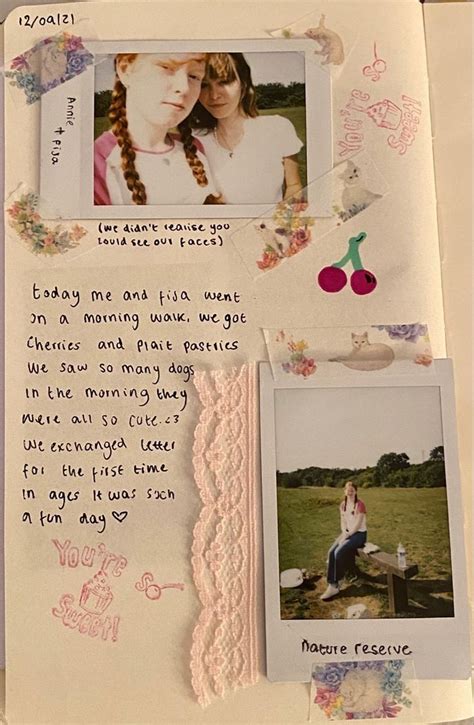 12/09/21
Annie + Pija
(we didn't realise you could see our faces)
YOU'RE
SO
SWEET!
today me and pija went
on a morning walk. we got
Cherries and plait pastries
We saw so many dogs
In the morning they
were all so cute <3
We exchanged letter
for the first time
In ages It was such
a fun day ♡
YOU'RE
SO
SWEET!
nature reserve